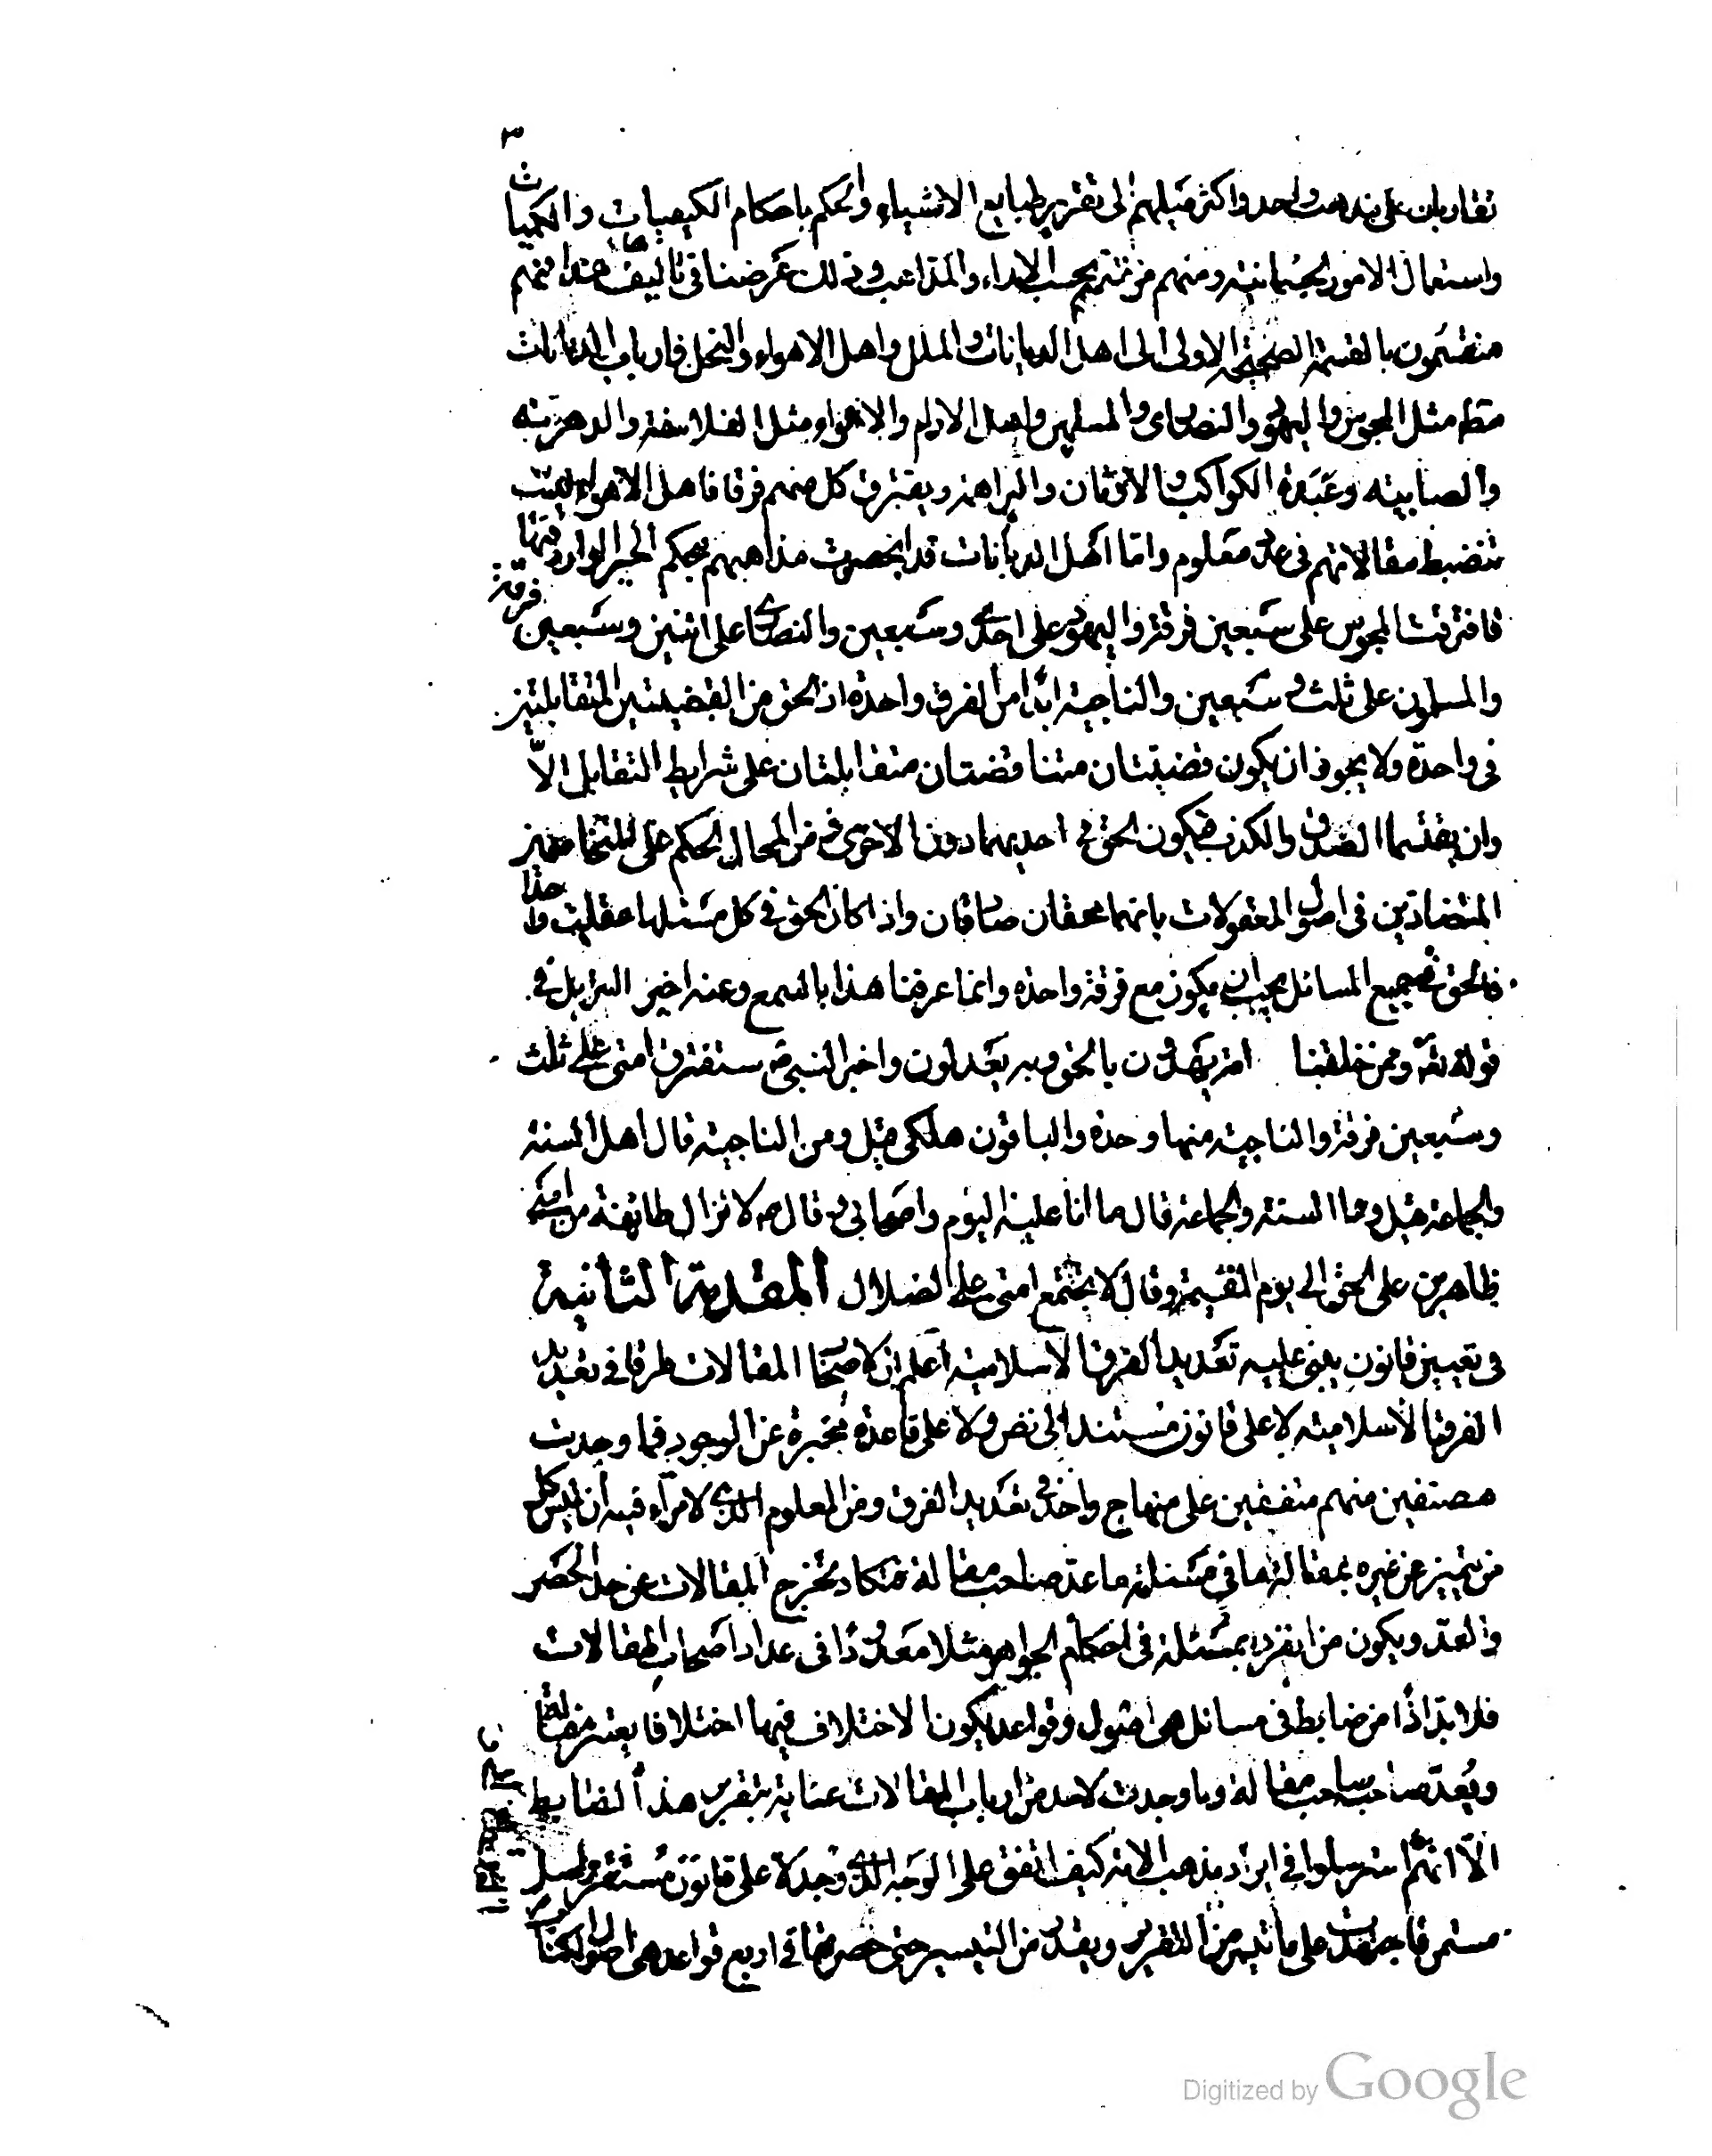 ٣
تقاربان على مذهب واحد واكثر ميلهم الى تقرير طبايع الاشياء والحكم باحكام الكيفيات والكميات
واستعمال الامور الجسمانية ومنهم من قسمهم بحسب الاراء والمذاهب وذلك غرضنا فى تاليف هذا فهم
منقسمون بالقسمة الصحيحة الاولى الى اهل الديانات والملل واهل الاهواء والنحل فارباب الديانات
مط مثل المجوس واليهود والنصارى والمسلمين واهل الاراء والاهواء مثل الفلاسفة والدهرية
والصابية وعبدة الكواكب والاوثان والبراهمة ويفترق كل منهم فرقا فاهل الاهواء ليست
تنضبط مقالاتهم فى عدد معلوم واما اهل الديانات قد انحصرت مذاهبهم بحكم الخبر الوارد فيها
فافترقت المجوس على سبعين فرقة واليهود على احدى وسبعين والنصارى على اثنين وسبعين فرقة
والمسلمون على ثلث وسبعين والناجية ابدا من الفرق واحدة اذ الحق من القضيتين المتقابلتين
فى واحدة ولا يجوز ان يكون قضيتان متناقضتان متقابلتان على شرايط التقابل الا
وان يقتسما الصدق والكذب فيكون الحق فى احديهما دون الاخرى ومن المحال الحكم على المتخاصمين
المتضادين فى اصول المعقولات بانهما محقان صادقان واذا كان الحق فى كل مسئلة عقلية واحدا
فالحق فى جميع المسائل يجب ان يكون مع فرقة واحدة وانما عرفنا هذا بالسمع وعنه اخبر التنزيل فى
قوله تعه وممن خلقنا امة يهدون بالحق وبه يعدلون واخبر النبى ص ستفترق امتى على ثلث
وسبعين فرقة والناجية منها وحدة والباقون هلكى قيل ومن الناجية قال اهل السنة
والجماعة قيل وما السنة والجماعة قال ما انا عليه اليوم واصحابى وقال ص لا تزال طائفة من امتى
ظاهرين على الحق الى يوم القيمة وقال لا يجتمع امتى على الضلال المقدمة الثانية
فى تعيين قانون يبنى عليه تعديد الفرق الاسلامية اعلم ان لاصحاب المقالات طرقا فى تعديد
الفرق الاسلامية لا على قانون مستند الى نص ولا على قاعدة مخبرة عن الوجود فما وجدت
مصنفين منهم متفقين على منهاج واحد فى تعديد الفرق ومن المعلوم الذى لا مراء فيه ان ليس كل
من تميز عن غيره بمقالة ما فى مسئلة ما عد صاحب مقالة فتكاد تخرج المقالات عن حد الحصر
والعد ويكون من انفرد بمسئلة فى احكام الجواهر مثلا معدودا فى عداد اصحاب المقالات
فلا بد اذا من ضابط فى مسائل هى اصول وقواعد يكون الاختلاف فيها اختلافا يعتبر مقالة
ويعد صاحبه صاحب مقالة وما وجدت لاحد من ارباب المقالات عناية بتقرير هذا الضابط
الا انهم استرسلوا فى ايراد مذهب الامة كيف اتفق على الوجه الذى وجد لا على قانون مستقر واصل
مستمر فاجتهدت على ما تيسر من التقرير وتقدر من التيسير حتى حصرتها فى اربع قواعد هى اصول